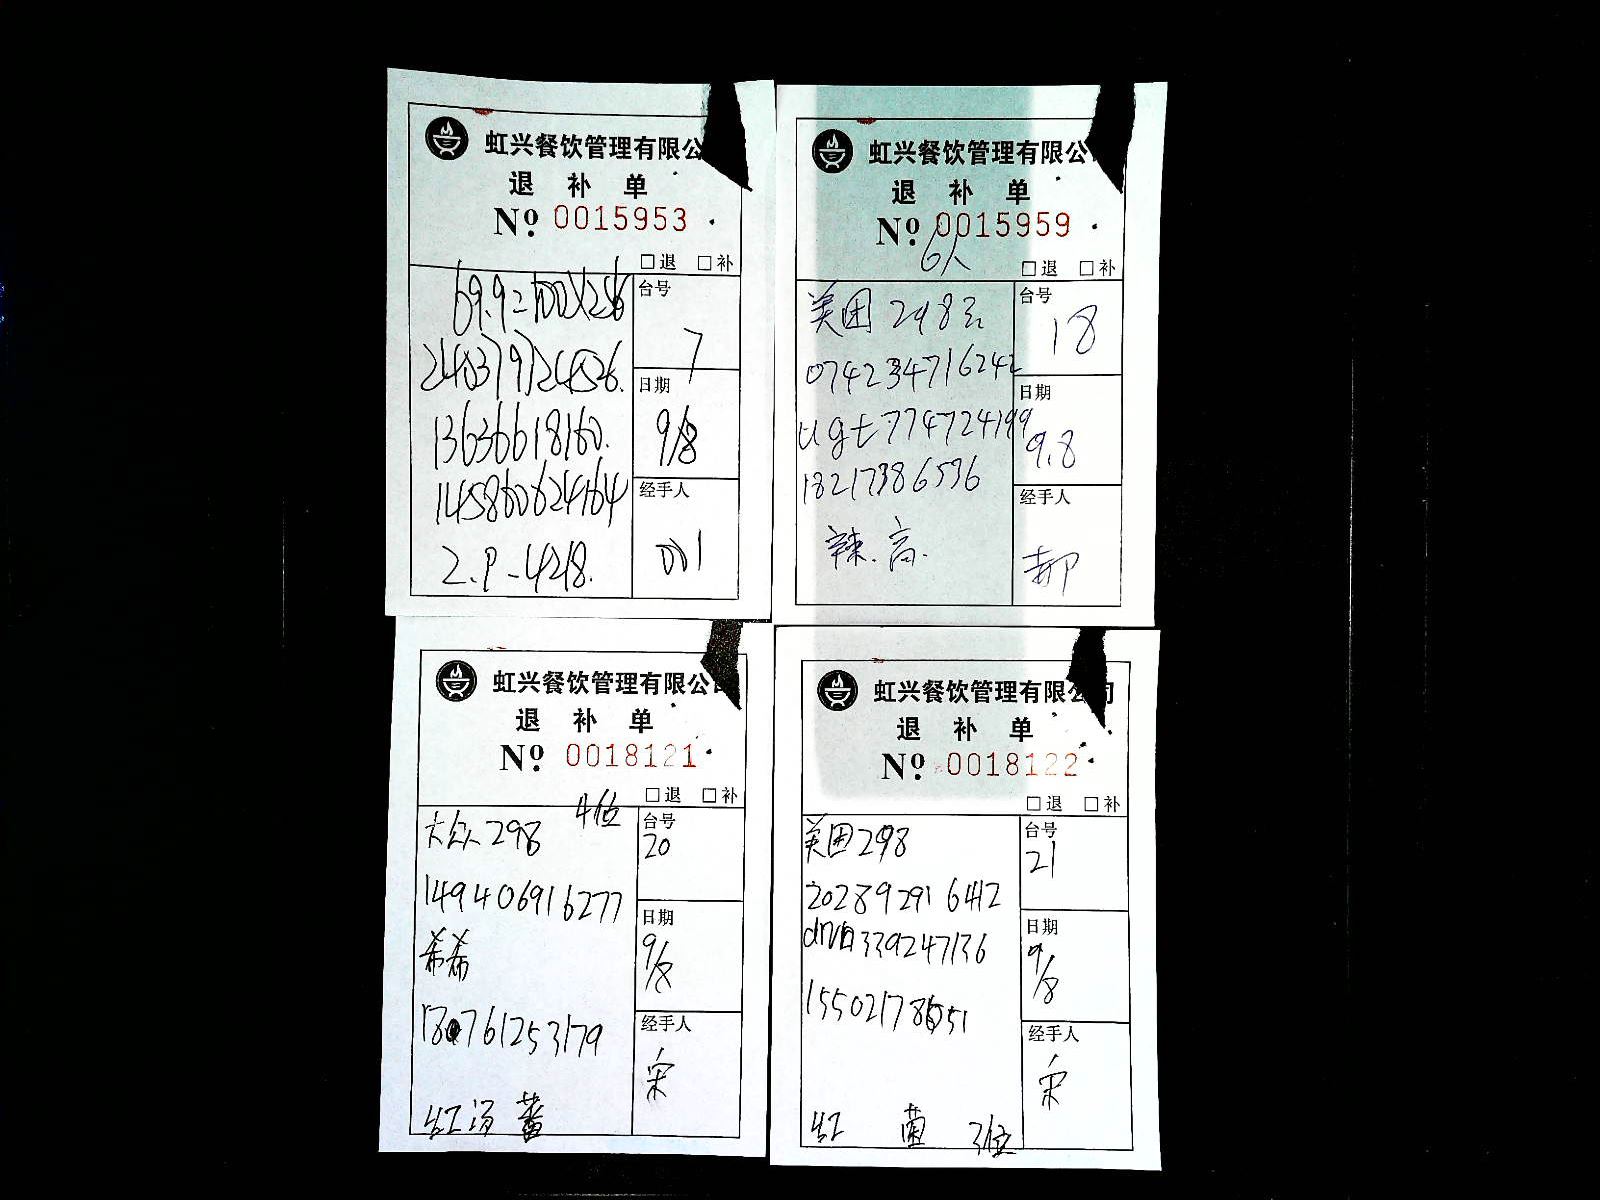 虹兴餐饮管理有限公
退 补 单
No. 0015953
□退 □补
69.9=100X256
台号
7
2403797124526.
日期
9/8
13636618160.
145860624164
经手人
001
2.P-4218.
虹兴餐饮管理有限公司
退 补 单
No. 0015959
6人
□退 □补
美团 298元
台号
18
0742347716242
日期
9.8
ugt774724199
18217386536
经手人
郝
辣.高.
虹兴餐饮管理有限公司
退 补 单
No. 0018121
4位
□退 □补
大众298
台号
20
149406916277
日期
9/8
希希
180761253179
经手人
宋
红汤 蕃
虹兴餐饮管理有限公司
退 补 单
No. 0018122
□退 □补
美团298
台号
21
202892916412
日期
9/8
339247136
经手人
宋
红 菌 3位